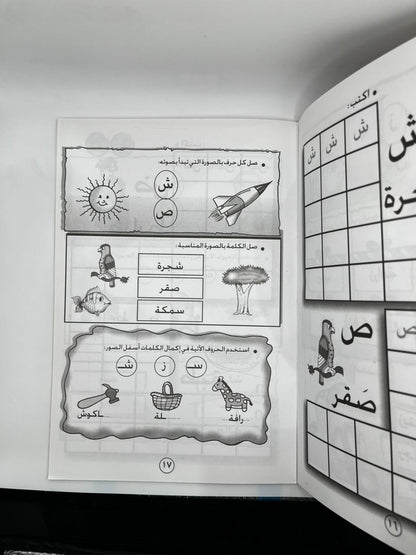 اكتب:
ش ش ش
ش
ص
صَقر
١٦
صل كل حرف بالصورة التي تبدأ بصوته:
ش
ص
صل الكلمة بالصورة المناسبة:
شجرة
صقر
سمكة
استخدم الحروف الآتية في إكمال الكلمات أسفل الصور:
سـ ز شـ
ـرافة ـلة ـاكوش
١٧